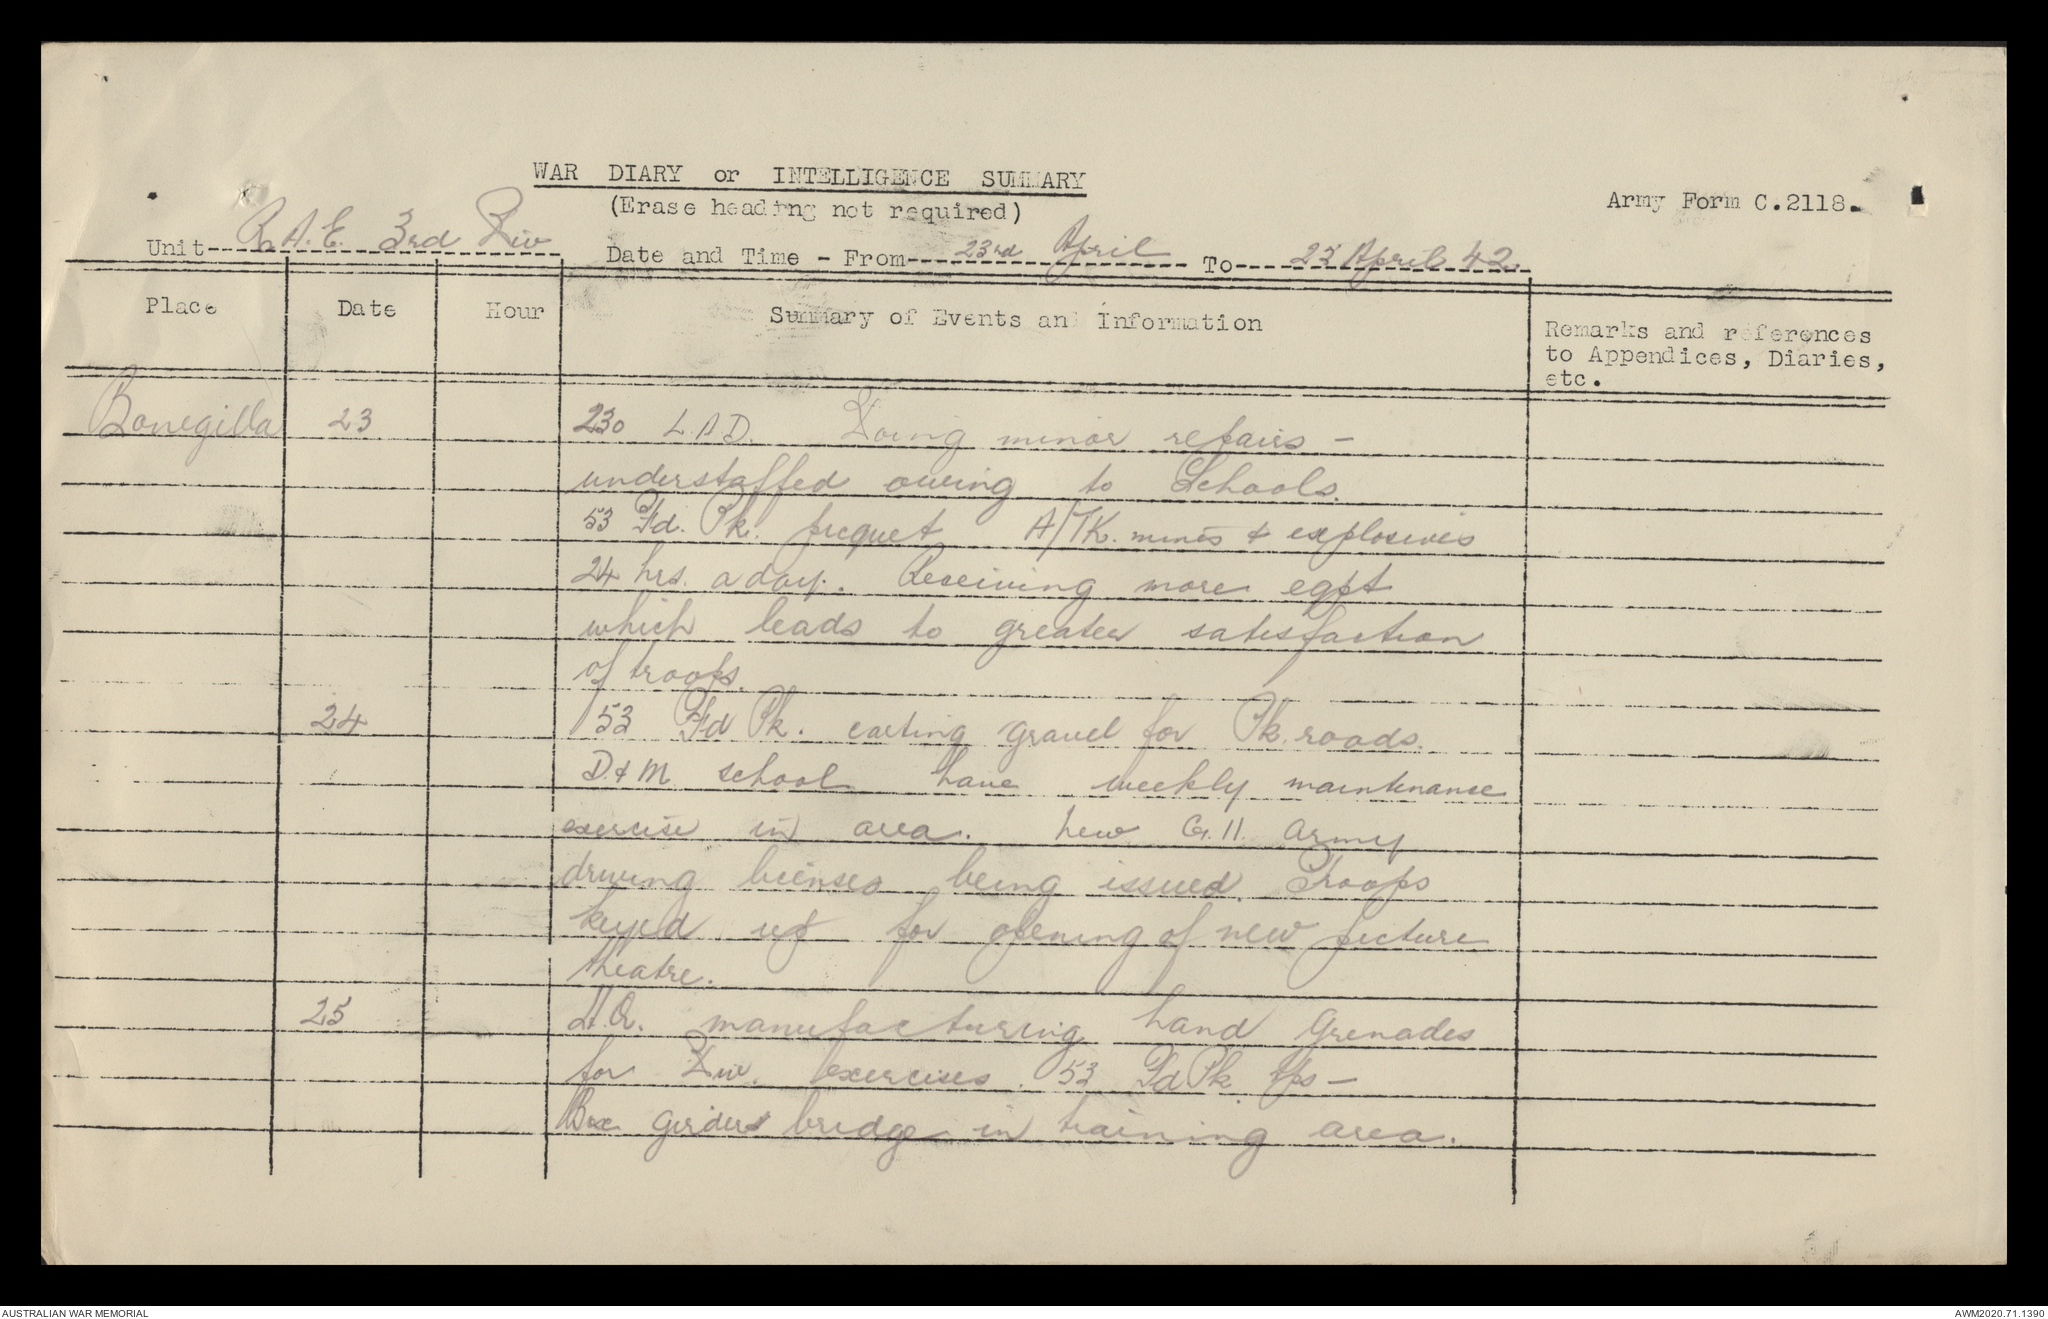 WAR DIARY or INTELLIGENCE SUMMARY
(Erase heading not required)
Army Form C.2118.
Unit R.A.E. 3rd Div
Date and Time - From 23rd April To 25 April 42.
Place Date Hour Summary of Events and Information Remarks and references
to Appendices, Diaries,
etc.
Bonegilla 23 230 L.A.D. Doing minor repairs -
understaffed owing to Schools.
53 Fd. Pk. picquet A/TK. mines & explosives
24 hrs. a day. Receiving more eqpt
which leads to greater satisfaction
of troops.
24 53 Fd Pk. carting gravel for Pk. roads.
D & M school have weekly maintenance
exercise in area. New G.11. Army
driving licenses being issued. Troops
keyed up for opening of new picture
theatre.
25 H.Q. manufacturing hand grenades
for Div. exercises. 53 Fd Pk. tps -
Box girder bridge in training area.
AUSTRALIAN WAR MEMORIAL
AWM2020.71.1390